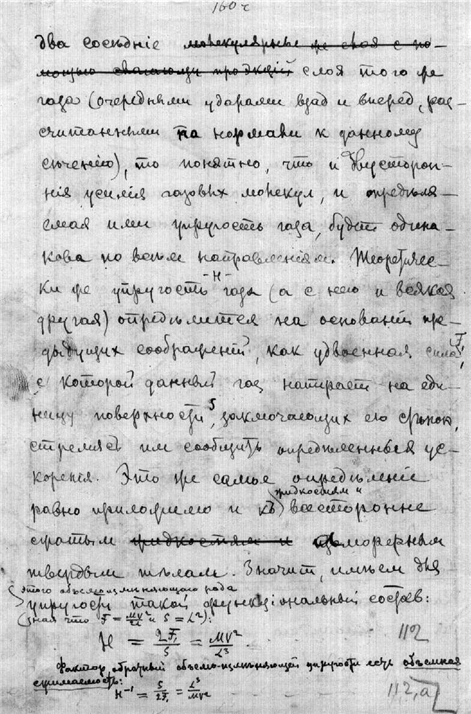 160 г
два сосѣднiе молекулярные же слоя с по-
мощью слагающих проэкцiй слоя того же
газа (очередными ударами взад и вперед, рас-
считанными по нормали к данному
сѣченiю), то понятно, что и двусторон-
нiя усилiя газовых молекул, и опредѣля-
емая ими упругость газа, будет одина-
кова по всѣм направленiям. Теоретичес-
-H-
ки же упругость газа (а с нею и всякая
другая) опредѣлится на основанiи пре-
дыдущих соображенiй, как удвоенная сила F₁,
с которой данный газ напирает на еди-
ницу поверхности S, заключающих его стѣнок,
стремясь им сообщить опредѣленныя ус-
коренiя. Это же самое опредѣленiе
жидкостям и
равно приложимо и къ всесторонне
сжатым жидкостям и изоморерным
твердым тѣлам. Значит, имѣем для
этого объемоизмѣняющего рода
упругости такой функцiональный состав:
(зная что F = MV²/L и S = L²):
H = 2F₁/S = MV²/L³
112
Фактор, обратный объемо-измѣняющей упругости есть объемная
сжимаемость:
H⁻¹ = S/2F₁ = L³/MV²
112, а